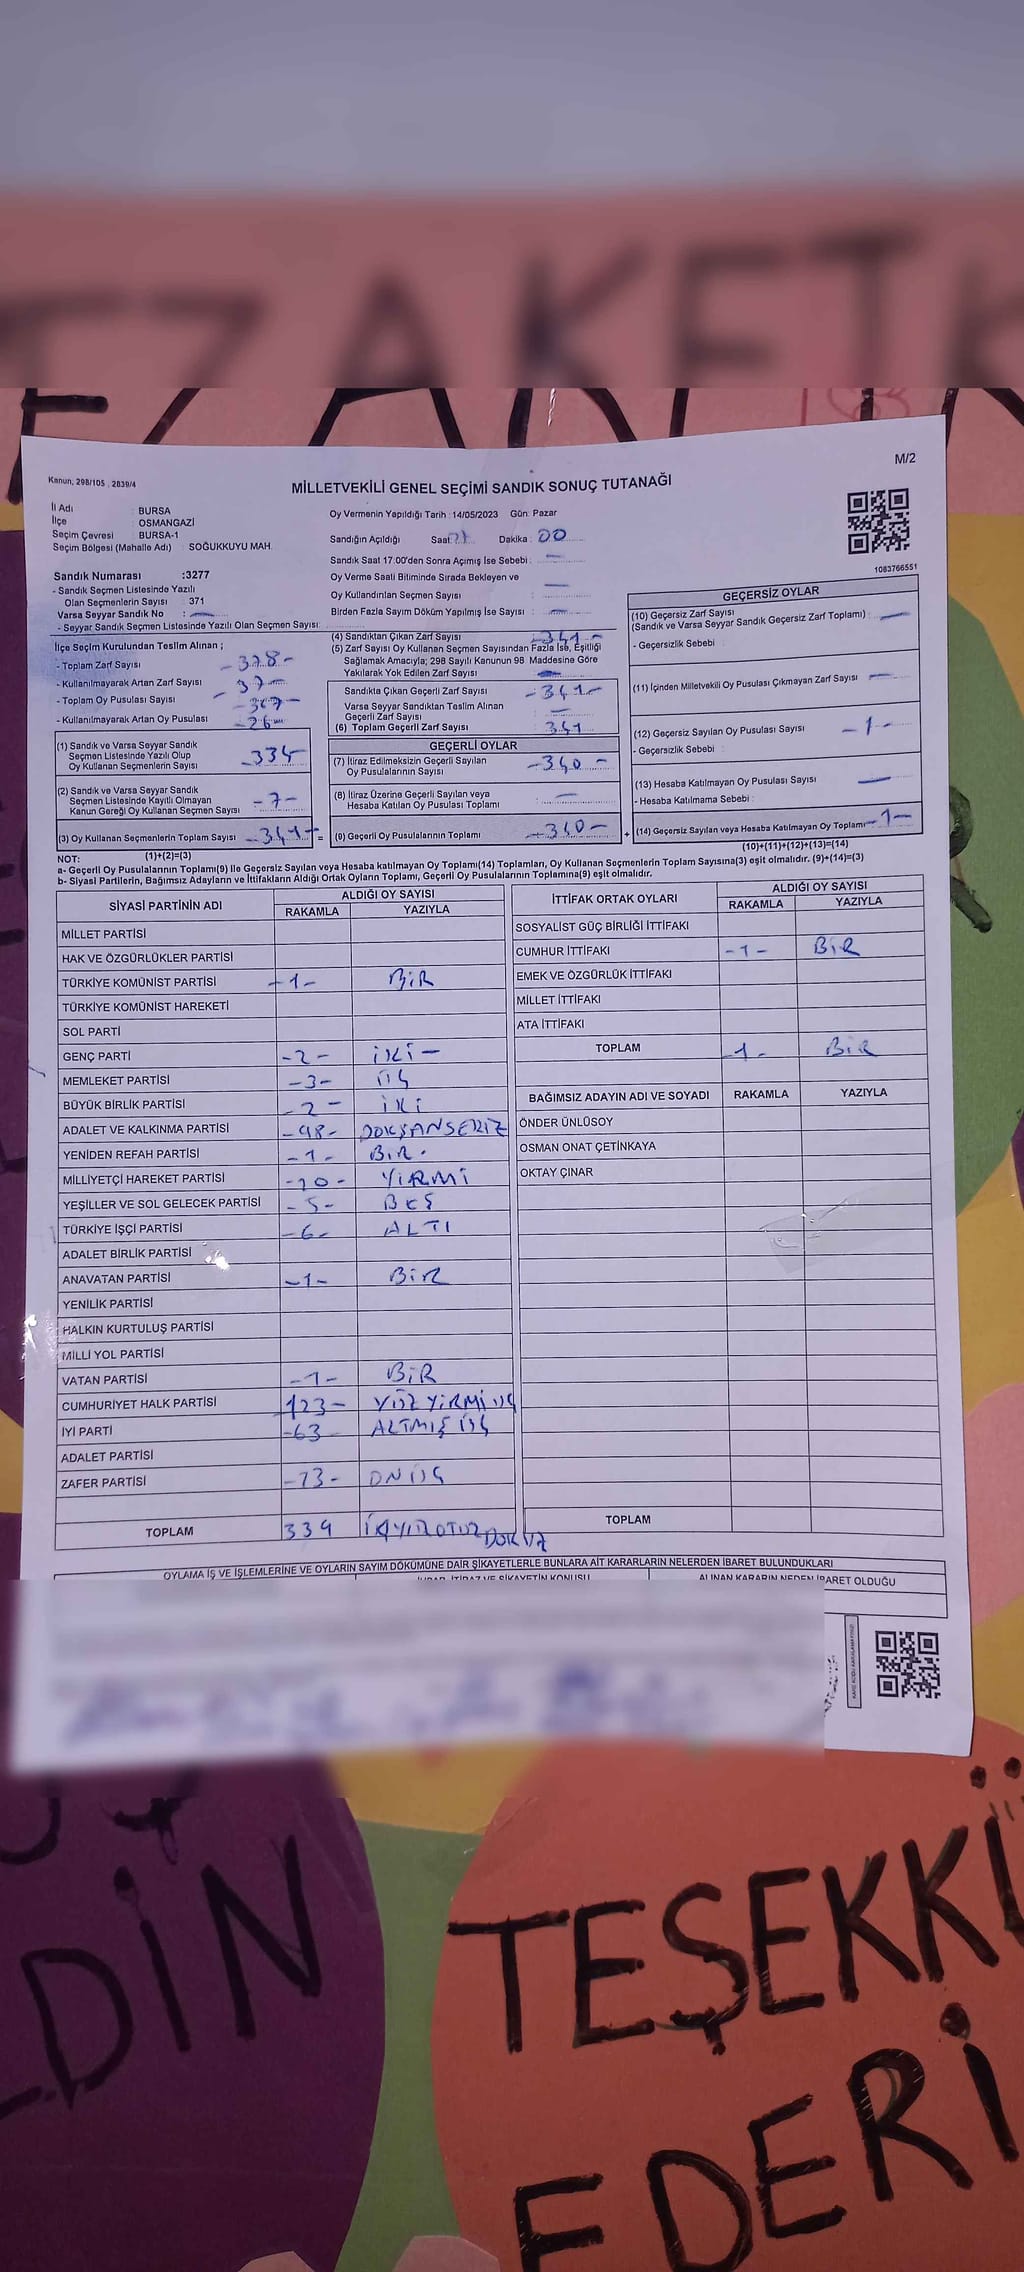 EZAKETK
M/2
Kanun, 298/105 , 2839/4
MİLLETVEKİLİ GENEL SEÇİMİ SANDIK SONUÇ TUTANAĞI
İl Adı : BURSA
İlçe : OSMANGAZİ
Seçim Çevresi : BURSA-1
Seçim Bölgesi (Mahalle Adı) : SOĞUKKUYU MAH.
Oy Vermenin Yapıldığı Tarih : 14/05/2023 Gün: Pazar
Sandığın Açıldığı Saat: Dakika : 00
Sandık Saat 17:00'den Sonra Açılmış İse Sebebi : —
Oy Verme Saati Bitiminde Sırada Bekleyen ve
Oy Kullandırılan Seçmen Sayısı : —
Birden Fazla Sayım Döküm Yapılmış İse Sayısı : —
1083766551
Sandık Numarası :3277
- Sandık Seçmen Listesinde Yazılı
Olan Seçmenlerin Sayısı : 371
Varsa Seyyar Sandık No : —
- Seyyar Sandık Seçmen Listesinde Yazılı Olan Seçmen Sayısı:
İlçe Seçim Kurulundan Teslim Alınan ;
- Toplam Zarf Sayısı -378-
- Kullanılmayarak Artan Zarf Sayısı - 37-
- Toplam Oy Pusulası Sayısı -367-
- Kullanılmayarak Artan Oy Pusulası -26-
(1) Sandık ve Varsa Seyyar Sandık
Seçmen Listesinde Yazılı Olup
Oy Kullanan Seçmenlerin Sayısı -334
(2) Sandık ve Varsa Seyyar Sandık
Seçmen Listesinde Kayıtlı Olmayan
Kanun Gereği Oy Kullanan Seçmen Sayısı -7-
(3) Oy Kullanan Seçmenlerin Toplam Sayısı -341- =
(1)+(2)=(3)
(4) Sandıktan Çıkan Zarf Sayısı -341-
(5) Zarf Sayısı Oy Kullanan Seçmen Sayısından Fazla İse, Eşitliği
Sağlamak Amacıyla; 298 Sayılı Kanunun 98 Maddesine Göre
Yakılarak Yok Edilen Zarf Sayısı —
Sandıkta Çıkan Geçerli Zarf Sayısı -341-
Varsa Seyyar Sandıktan Teslim Alınan
Geçerli Zarf Sayısı —
(6) Toplam Geçerli Zarf Sayısı 341
GEÇERLİ OYLAR
(7) İtiraz Edilmeksizin Geçerli Sayılan
Oy Pusulalarının Sayısı -340-
(8) İtiraz Üzerine Geçerli Sayılan veya
Hesaba Katılan Oy Pusulası Toplamı —
(9) Geçerli Oy Pusulalarının Toplamı -340- +
GEÇERSİZ OYLAR
(10) Geçersiz Zarf Sayısı
(Sandık ve Varsa Seyyar Sandık Geçersiz Zarf Toplamı) : —
- Geçersizlik Sebebi :
(11) İçinden Milletvekili Oy Pusulası Çıkmayan Zarf Sayısı —
(12) Geçersiz Sayılan Oy Pusulası Sayısı -1-
- Geçersizlik Sebebi :
(13) Hesaba Katılmayan Oy Pusulası Sayısı —
- Hesaba Katılmama Sebebi :
(14) Geçersiz Sayılan veya Hesaba Katılmayan Oy Toplamı -1-
(10)+(11)+(12)+(13)=(14)
NOT:
a- Geçerli Oy Pusulalarının Toplamı(9) ile Geçersiz Sayılan veya Hesaba katılmayan Oy Toplamı(14) Toplamları, Oy Kullanan Seçmenlerin Toplam Sayısına(3) eşit olmalıdır. (9)+(14)=(3)
b- Siyasi Partilerin, Bağımsız Adayların ve İttifakların Aldığı Ortak Oyların Toplamı, Geçerli Oy Pusulalarının Toplamına(9) eşit olmalıdır.
SİYASİ PARTİNİN ADI ALDIĞI OY SAYISI
RAKAMLA YAZIYLA
MİLLET PARTİSİ
HAK VE ÖZGÜRLÜKLER PARTİSİ
TÜRKİYE KOMÜNİST PARTİSİ -1- BİR
TÜRKİYE KOMÜNİST HAREKETİ
SOL PARTİ
GENÇ PARTİ -2- İKİ-
MEMLEKET PARTİSİ -3- ÜÇ
BÜYÜK BİRLİK PARTİSİ -2- İKİ
ADALET VE KALKINMA PARTİSİ -98- DOKSANSEKİZ
YENİDEN REFAH PARTİSİ -1- BİR.
MİLLİYETÇİ HAREKET PARTİSİ -20- YİRMİ
YEŞİLLER VE SOL GELECEK PARTİSİ -5- BEŞ
TÜRKİYE İŞÇİ PARTİSİ -6- ALTI
ADALET BİRLİK PARTİSİ
ANAVATAN PARTİSİ -1- BİR
YENİLİK PARTİSİ
HALKIN KURTULUŞ PARTİSİ
MİLLİ YOL PARTİSİ
VATAN PARTİSİ -1- BİR
CUMHURİYET HALK PARTİSİ 123- YÜZYİRMİÜÇ
İYİ PARTİ -63 ALTMIŞ ÜÇ
ADALET PARTİSİ
ZAFER PARTİSİ -13- ONÜÇ
TOPLAM 339 DOKUZ
İTTİFAK ORTAK OYLARI ALDIĞI OY SAYISI
RAKAMLA YAZIYLA
SOSYALİST GÜÇ BİRLİĞİ İTTİFAKI
CUMHUR İTTİFAKI -1- BİR
EMEK VE ÖZGÜRLÜK İTTİFAKI
MİLLET İTTİFAKI
ATA İTTİFAKI
TOPLAM -1- BİR
BAĞIMSIZ ADAYIN ADI VE SOYADI RAKAMLA YAZIYLA
ÖNDER ÜNLÜSOY
OSMAN ONAT ÇETİNKAYA
OKTAY ÇINAR
TOPLAM
OYLAMA İŞ VE İŞLEMLERİNE VE OYLARIN SAYIM DÖKÜMÜNE DAİR ŞİKAYETLERLE BUNLARA AİT KARARLARIN NELERDEN İBARET BULUNDUKLARI
İTİRAZ VE ŞİKAYETİN KONUSU ALINAN KARARIN NEDEN İBARET OLDUĞU
DİN
TEŞEKKÜ
EDERİ